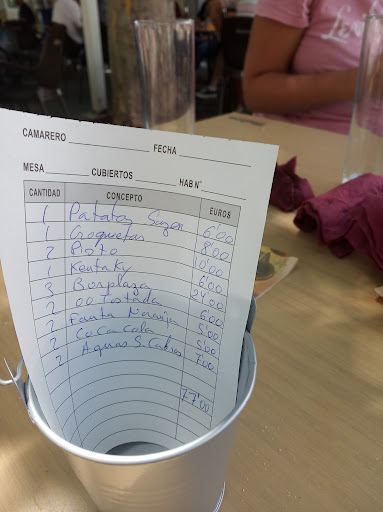 CAMARERO FECHA
MESA CUBIERTOS HAB Nº
CANTIDAD CONCEPTO EUROS
1 Patatas 6'00
1 Croquetas 8'00
2 Pisto 10'00
1 Kentaky 6'00
3 Rosplaza 24'00
2 00 Tostada 6'00
2 Fanta Naranja 5'00
2 CoCa Cola 5'00
2 Aguas S. 7'00
77'00